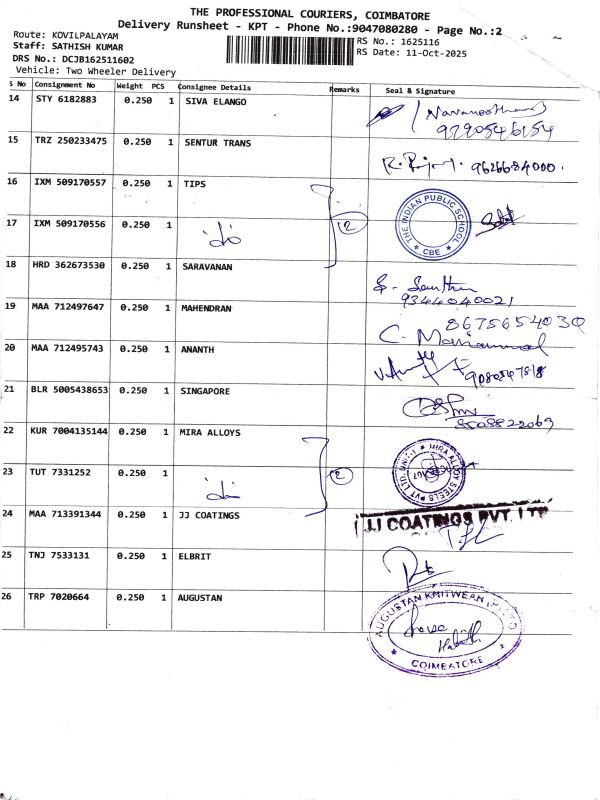 THE PROFESSIONAL COURIERS, COIMBATORE
Delivery Runsheet - KPT - Phone No.:9047080280 - Page No.:2
Route: KOVILPALAYAM
RS No.: 1625116
Staff: SATHISH KUMAR
RS Date: 11-Oct-2025
DRS No.: DCJB162511602
Vehicle: Two Wheeler Delivery
S No Consignment No Weight PCS Consignee Details Remarks Seal & Signature
14 STY 6182883 0.250 1 SIVA ELANGO
15 TRZ 250233475 0.250 1 SENTUR TRANS
9626684000
16 IXM 509170557 0.250 1 TIPS
THE INDIAN PUBLIC SCHOOL
CBE
17 IXM 509170556 0.250 1 2
18 HRD 362673530 0.250 1 SARAVANAN
9344040021
19 MAA 712497647 0.250 1 MAHENDRAN
8675654030
20 MAA 712495743 0.250 1 ANANTH
21 BLR 5005438653 0.250 1 SINGAPORE
22 KUR 7004135144 0.250 1 MIRA ALLOYS
MIRA ALLOY STEELS PVT LTD. UNIT-1
23 TUT 7331252 0.250 1 2
24 MAA 713391344 0.250 1 JJ COATINGS
JJ COATINGS PVT. LTD
25 TNJ 7533131 0.250 1 ELBRIT
26 TRP 7020664 0.250 1 AUGUSTAN
AUGUSTAN KNITWEAR
COIMBATORE